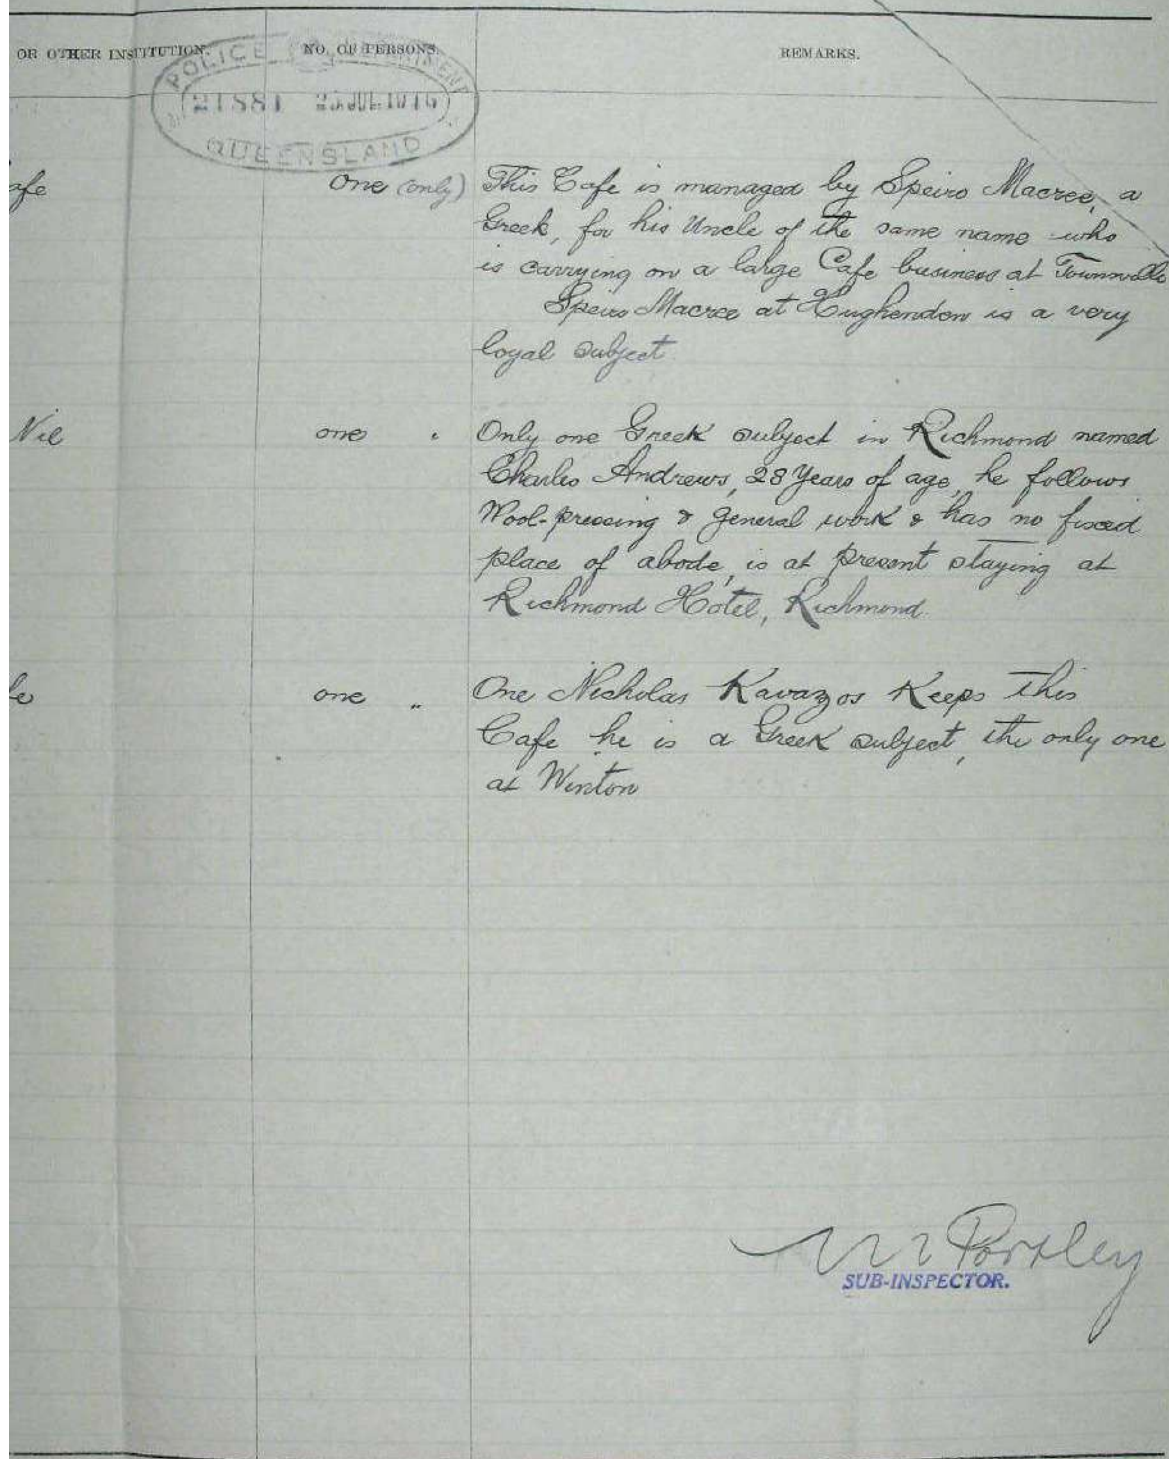 OR OTHER INSTITUTION. NO. OF PERSONS. REMARKS.
POLICE DEPARTMENT
21881 25 JUL 1916
QUEENSLAND
afe one (only) This Cafe is managed by Speiro Macree, a
Greek, for his Uncle of the same name who
is carrying on a large Cafe business at Townsville
Speiro Macree at Hughenden is a very
loyal subject.
Nil one " Only one Greek subject in Richmond named
Charles Andrews, 28 Years of age, he follows
Wool-pressing & general work & has no fixed
place of abode, is at present staying at
Richmond Hotel, Richmond.
fe one " One Nicholas Kavazos Keeps this
Cafe he is a Greek subject, the only one
at Winton
Portley
SUB-INSPECTOR.